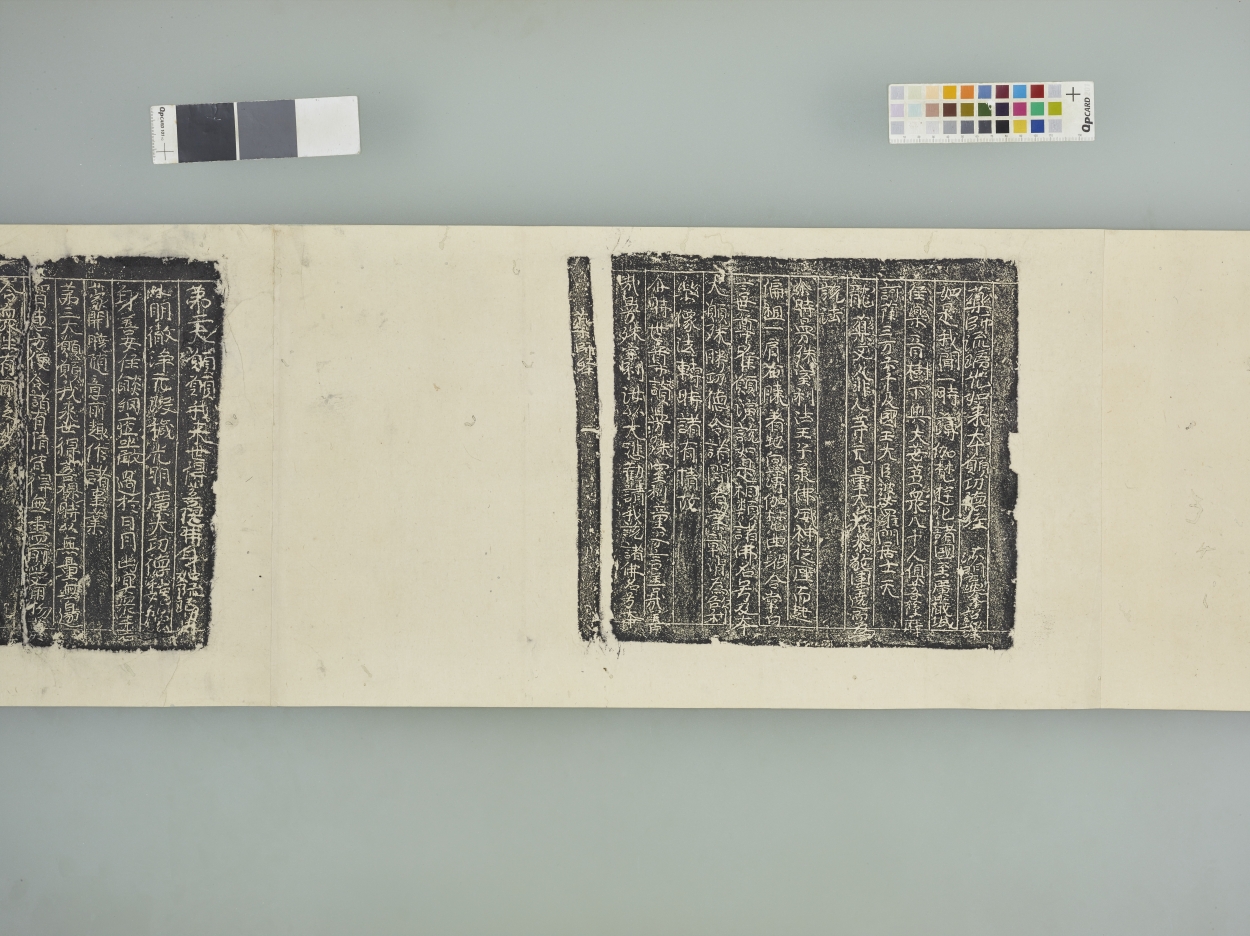 藥師琉璃光如來本願功德經 大唐三藏奉詔譯
如是我聞一時薄伽梵遊化諸國至廣嚴城
住樂音樹下與大苾芻眾八千人俱菩薩摩
訶薩三万六千及國王大臣婆羅門居士天
龍藥叉人非人等无量大眾恭敬圍遶而為
說法
尒時曼殊室利法王子承佛威神從座而起
偏袒一肩右膝著地向薄伽梵曲躬合掌白
言世尊惟願演說如是相類諸佛名号及本
大願殊勝功德令諸聞者業鄣消除為欲利
樂像法轉時諸有情故
尒時世尊讚曼殊室利童子言善哉善
哉曼殊室利汝以大悲勸請我說諸佛名号本
藥師經
第二大願願我來世得菩提時身如琉璃內
外明徹淨无瑕穢光明廣大功德巍巍
身善安住焰網莊嚴過於日月幽冥眾生
蒙開曉隨意所趣作諸事業
第三大願願我來世得菩提時以無量無邊
智慧方便令諸有情皆得無盡所受用物
令眾生有所乏少